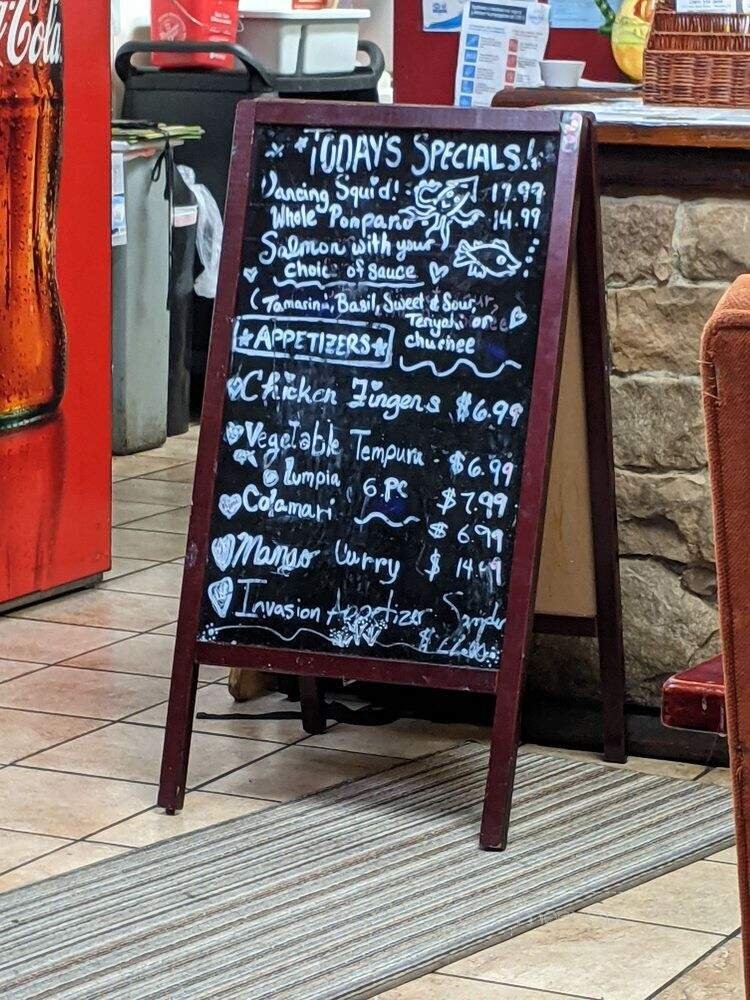 Coca-Cola
TODAY'S SPECIALS!
Dancing Squid! 17.97
Whole Pompano 14.99
Salmon with your
choice of sauce
(Tamarind, Basil, Sweet & Sour,
Teriyaki or
chuchee
APPETIZERS
Chicken Fingers $6.99
Vegetable Tempura - $6.99
Lumpia 6.PC $7.99
Calamari $6.99
Mango Curry $14.49
Invasion Appetizer